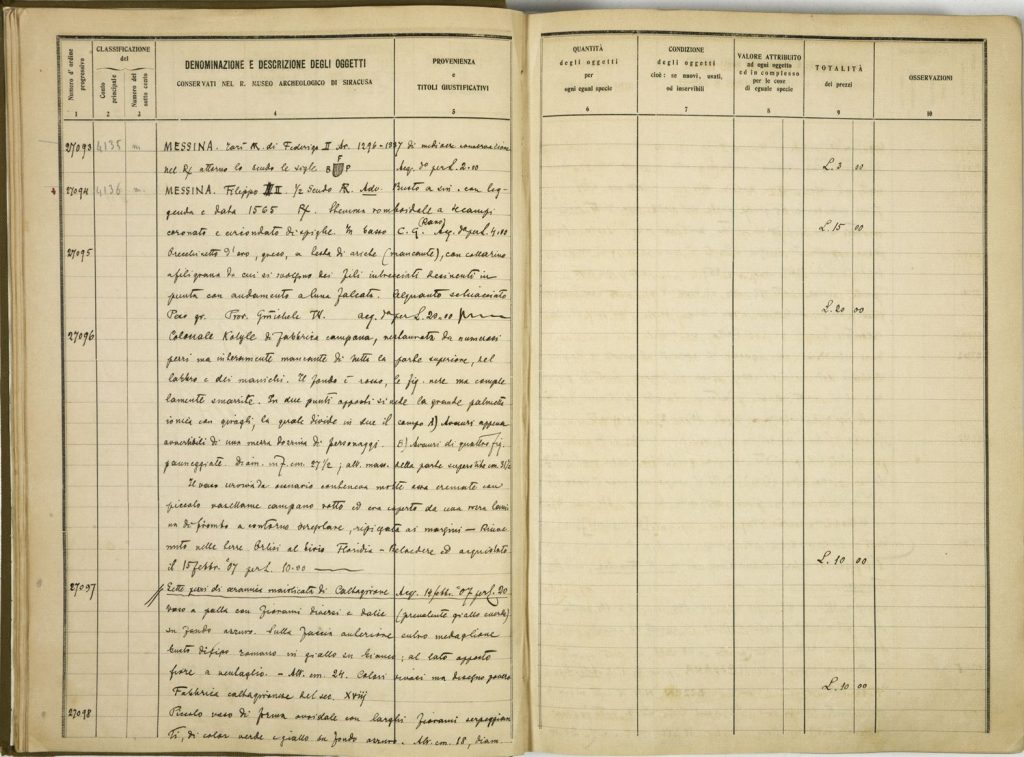 Numero d'ordine progressivo
CLASSIFICAZIONE
del
Conto principale
Numero del sotto conto
DENOMINAZIONE E DESCRIZIONE DEGLI OGGETTI
CONSERVATI NEL R. MUSEO ARCHEOLOGICO DI SIRACUSA
PROVENIENZA
e
TITOLI GIUSTIFICATIVI
1 2 3 4 5
27093 4135 m MESSINA. Tarì AR. di Federigo II Av. 1296-1337 di mediocre conservazione
nel R/ attorno lo scudo le sigle B F P Acq. to per L. 2.00
27094 4136 m. MESSINA. Filippo II. 1/2 Scudo AR. Adv. Busto a sin. con leg-
genda e data 1565 R/. Stemma romboidale a 12 campi
coronato e circondato di spighe. In basso C. G. (Raro) Acq. to per L. 4.00
27095 Orecchinetto d'oro, greco, a testa di ariete (mancante), con collarino
a filigrana da cui si svolgono dei fili intrecciati desinenti in
punta con andamento a luna falcata. Alquanto schiacciato
Peso gr. Prov. Gmichele acq. to per L. 20.00
27096 Colossale Kotyle di fabbrica campana, restaurata da numerosi
pezzi ma interamente mancante di tutta la parte superiore, del
labbro e dei manichi. Il fondo è rosso, le fig. nere ma comple
tamente smarrite. In due punti opposti si vede la grande palmetta
ionica con giragli, la quale divide in due il campo A) Avanzi appena
avvertibili di una mezza dozzina di personaggi. B) Avanzi di quattro fig.
panneggiate. Diam. inf. cm. 27 1/2; alt. mass. della parte superstite cm.
Il vaso conteneva molte ossa cremate con
piccolo vasellame campano rotto ed era coperto da una mera lami
na di piombo a contorno irregolare, ripiegata ai margini — Rinve
nuto nelle terre Ortisi al bivio Floridia - Belvedere ed acquistato
il 15 febbr. '07 per L. 10.00
27097 Sette pezzi di ceramica maiolicata di Caltagirone Acq. 19 febbr. '07 per L. 20
Vaso a palla con fiorami diversi e dalie (prevalente giallo
su fondo azzurro. Sulla faccia anteriore entro medaglione
busto di tipo romano in giallo su bianco; al lato opposto
fiore a ventaglio. - Alt. cm. 24. Colori vivaci ma disegno
Fabbrica caltagironese del sec. XVIII
27098 Piccolo vaso di forma ovoidale con larghi fiorami serpeggian
ti, di color verde e giallo su fondo azzurro. Alt. cm. 18, diam
QUANTITÀ
degli oggetti
per
ogni egual specie
6
CONDIZIONE
degli oggetti
cioè: se nuovi, usati,
od inservibili
7
VALORE ATTRIBUITO
ad ogni oggetto
ed in complesso
per le cose
di eguale specie
8
TOTALITÀ
dei prezzi
9
OSSERVAZIONI
10
L. 3 00
L. 15 00
L. 20 00
L. 10 00
L. 10 00